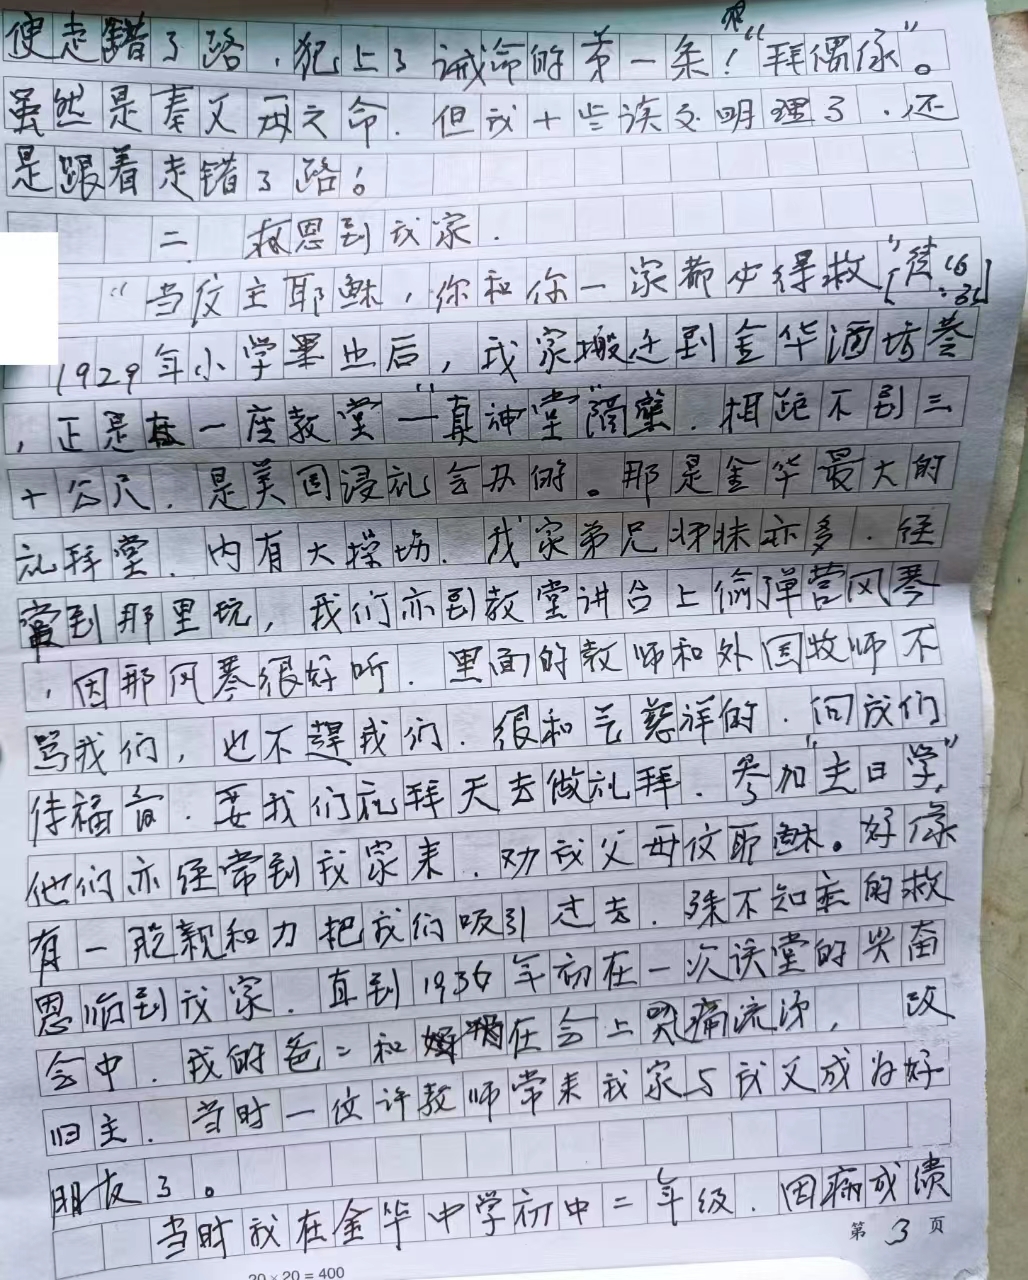 便走错了路，犯上了诫命的第一条！“拜偶像”。
虽然是奉父母之命．但我十些该交明理了．还
是跟着走错了路！
二 救恩到我家．
“当信主耶稣，你和你一家都必得救”[徒16:31]
1929年小学畢业后，我家搬迁到金华酒坊巷
，正是在一座教堂一“真神堂”隔壁．相距不到三
十公尺．是美国浸礼会办的。那是金华最大的
礼拜堂．内有大操场．我家弟兄姊妹亦多．经
常到那里玩，我们亦到教堂讲台上偷弹营风琴
，因那风琴很好听．里面的教师和外国牧师不
骂我们，也不趕我们．很和气慈祥的．向我们
传福音．要我们礼拜天去做礼拜．参加“主日学”
他们亦经常到我家来．劝我父母信耶稣。好像
有一股親和力把我们吸引过去．殊不知主的救
恩临到我家．直到1936年初在一次该堂的兴奋
会中．我的爸二和妈妈在会上哭痛流涕， 改
归主．当时一位许教师常来我家与我父成为好
朋友了。
当时我在金华中学初中二年级．因病成溃
第 3 页
20×20=400